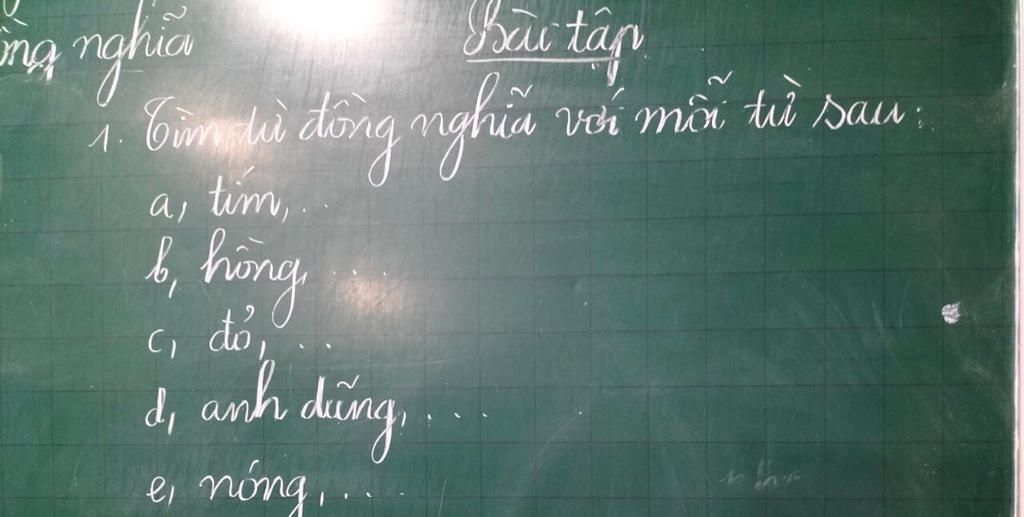 nghĩa
Bài tập
1. Tìm từ đồng nghĩa với mỗi từ sau:
a, tím, ..
b, hồng, ...
c, đỏ, ...
d, anh dũng, ...
e, nóng, ...